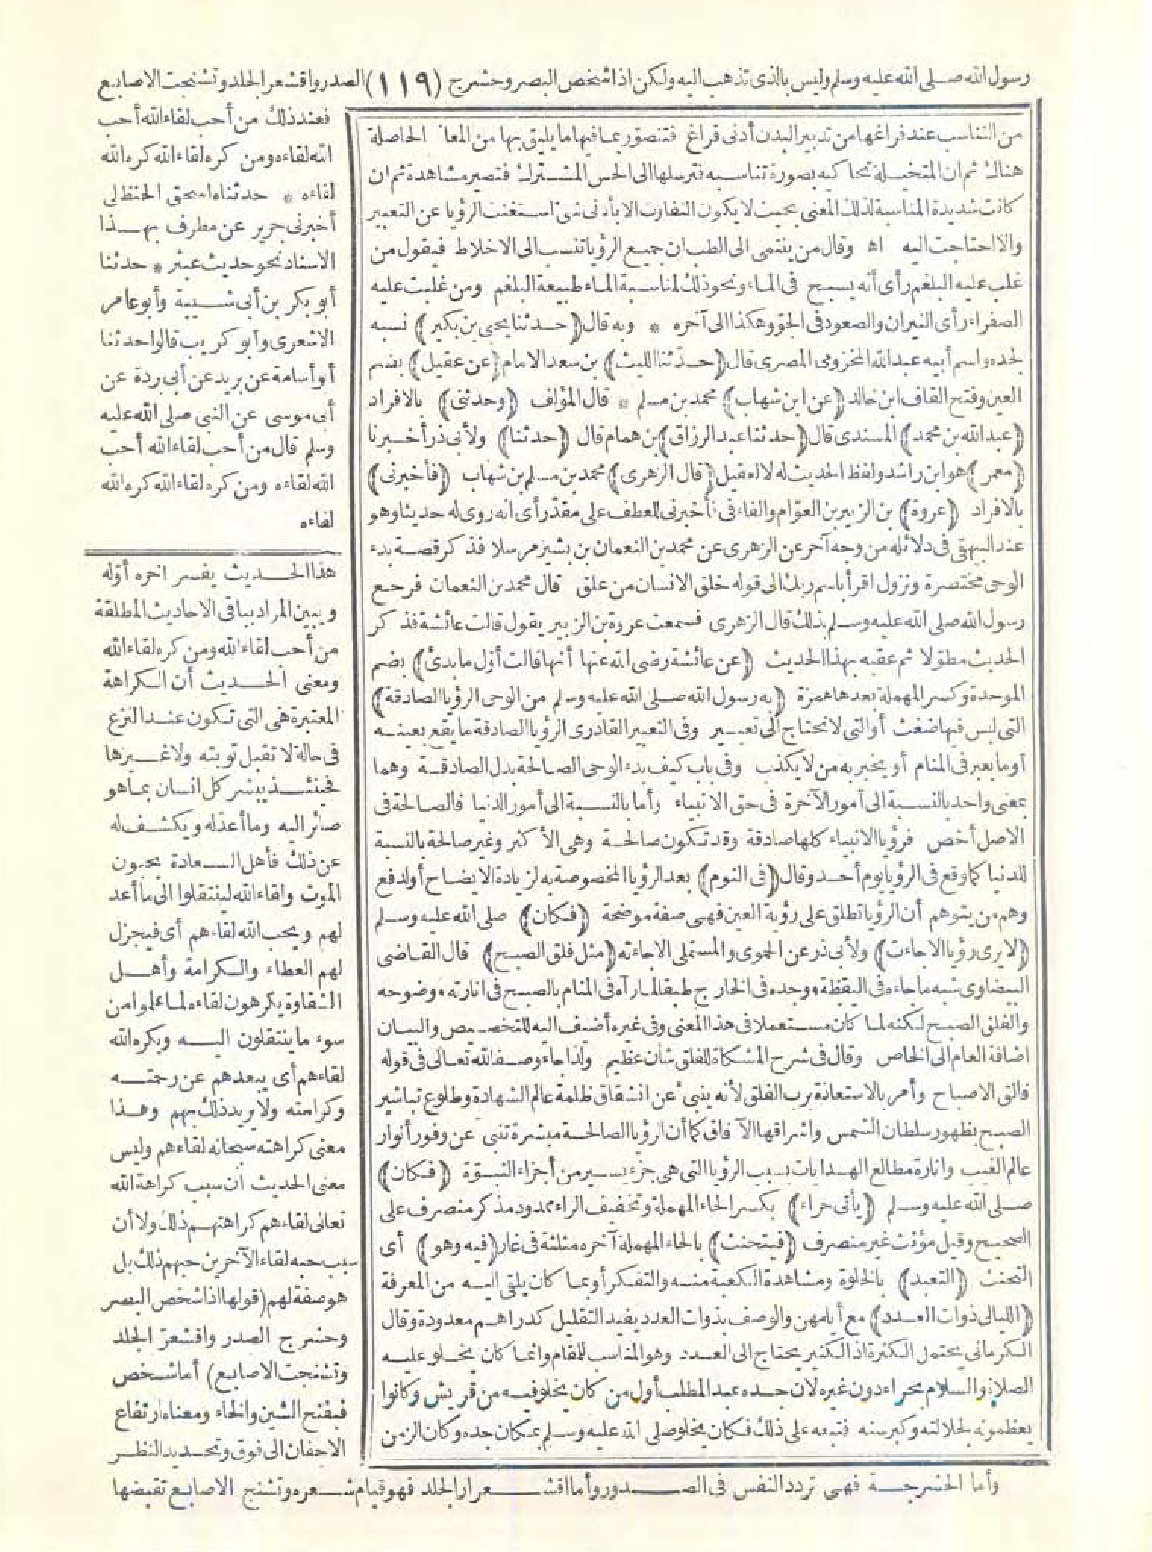 رسول الله صلى الله عليه وسلم وليس بالذى تذهب اليه ولكن اذا شخص البصر وحشرج (١١٩) الصدر واقشعر الجلد وتشنجت الاصابع
فعند ذلك من أحب لقاء الله أحب
الله لقاءه ومن كره لقاء الله كره الله
لقاءه * حدثناه اسحق الحنظلى
أخبرنى جرير عن مطرف بهذا
الاسناد نحو حديث عبثر * حدثنا
أبو بكر بن أبى شيبة وأبو عامر
الاشعرى وأبو كريب قالوا حدثنا
أبو أسامة عن بريد عن أبى بردة عن
أبى موسى عن النبى صلى الله عليه
وسلم قال من أحب لقاء الله أحب
الله لقاءه ومن كره لقاء الله كره الله
لقاءه
هذا الحديث يفسر اخره أوّله
ويبين المراد بباقى الاحاديث المطلقة
من أحب لقاء الله ومن كره لقاء الله
ومعنى الحديث أن الكراهة
المعتبرة هى التى تكون عند النزع
فى حالة لا تقبل توبته ولا غيرها
فحينئذ يبشر كل انسان بما هو
صائر اليه وما أعدّ له ويكشف له
عن ذلك فأهل السعادة يحبون
الموت ولقاء الله لينتقلوا الى ما أعد
لهم ويحب الله لقاءهم أى فيجزل
لهم العطاء والكرامة وأهل
الشقاوة يكرهون لقاءه لما علموا من
سوء ما ينتقلون اليه ويكره الله
لقاءهم أى يبعدهم عن رحمته
وكرامته ولا يريد ذلك بهم وهذا
معنى كراهته سبحانه لقاءهم وليس
معنى الحديث ان سبب كراهة الله
تعالى لقاءهم كراهتهم ذلك ولا أن
سبب حبه لقاء الآخرين حبهم ذلك بل
هو صفة لهم (قولها اذا شخص البصر
وحشرج الصدر واقشعرّ الجلد
وتشنجت الاصابع) أما شخص
فبفتح الشين والخاء ومعناه ارتفاع
الاجفان الى فوق وتحديد النظر
من التناسب عند فراغها من تدبير البدن أدنى فراغ فتتصوّر بما فيها ما يليق بها من المعانى الحاصلة
هناك ثم ان المتخيلة تحاكيه بصورة تناسبه فترسلها الى الحس المشترك فتصير مشاهدة ثم ان
كانت شديدة المناسبة لذلك المعنى بحيث لا يكون التفاوت الا بأدنى شئ استغنت الرؤيا عن التعبير
والا احتاجت اليه اه وقال من ينتمى الى الطب ان جميع الرؤيا تنسب الى الاخلاط فيقول من
غلب عليه البلغم رأى أنه يسبح فى الماء ونحو ذلك لمناسبة الماء طبيعة البلغم ومن غلبت عليه
الصفراء رأى النيران والصعود فى الجوّ وهكذا الى آخره * وبه قال (حدثنا يحيى بن بكير) نسبه
لجده واسم أبيه عبد الله المخزومى المصرى قال (حدّثنا الليث) بن سعد الامام (عن عقيل) بضم
العين وفتح القاف ابن خالد (عن ابن شهاب) محمد بن مسلم * قال المؤلف (وحدثنى) بالافراد
(عبد الله بن محمد) المسندى قال (حدثنا عبد الرزاق) بن همام قال (حدثنا) ولأبى ذر أخبرنا
(معمر) هو ابن راشد ولفظ الحديث له لا لعقيل (قال الزهرى) محمد بن مسلم بن شهاب (فأخبرنى)
بالافراد (عروة) بن الزبير بن العوّام والفاء فى فأخبرنى للعطف على مقدّر أى انه روى له حديثا وهو
عند البيهقى فى دلائله من وجه آخر عن الزهرى عن محمد بن النعمان بن بشير مرسلا فذكر قصة بدء
الوحى مختصرة ونزول اقرأ باسم ربك الى قوله خلق الانسان من علق قال محمد بن النعمان فرجع
رسول الله صلى الله عليه وسلم بذلك قال الزهرى فسمعت عروة بن الزبير يقول قالت عائشة فذكر
الحديث مطوّلا ثم عقبه بهذا الحديث (عن عائشة رضى الله عنها أنها قالت أوّل ما بدئ) بضم
الموحدة وكسر المهملة بعدها همزة (به رسول الله صلى الله عليه وسلم من الوحى الرؤيا الصادقة)
التى ليس فيها ضغث أو التى لا تحتاج الى تعبير وفى التعبير القادرى الرؤيا الصادقة ما يقع بعينه
أو ما يعبر فى المنام أو يخبر به من لا يكذب وفى باب كيف بدء الوحى الصالحة بدل الصادقة وهما
بمعنى واحد بالنسبة الى أمور الآخرة فى حق الانبياء وأما بالنسبة الى أمور الدنيا فالصالحة فى
الاصل أخص فرؤيا الانبياء كلها صادقة وقد تكون صالحة وهى الأكثر وغير صالحة بالنسبة
للدنيا كما وقع فى الرؤيا يوم أحد وقال (فى النوم) بعد الرؤيا المخصوصة به لزيادة الايضاح أو لدفع
وهم من يتوهم أن الرؤيا تطلق على رؤية العين فهى صفة موضحة (فكان) صلى الله عليه وسلم
(لا يرى رؤيا الا جاءت) ولأبى ذر عن الحموى والمستملى الا جاءته (مثل فلق الصبح) قال القاضى
البيضاوى شبه ما جاءه فى اليقظة ووجده فى الخارج طبقا لما رآه فى المنام بالصبح فى انارته ووضوحه
والفلق الصبح لكنه لما كان مستعملا فى هذا المعنى وفى غيره أضيف اليه للتخصيص والبيان
اضافة العام الى الخاص وقال فى شرح المشكاة للفلق شأن عظيم ولذا جاء وصف الله تعالى فى قوله
فالق الاصباح وأمر بالاستعاذة برب الفلق لأنه ينبئ عن انشقاق ظلمة عالم الشهادة وطلوع تباشير
الصبح بظهور سلطان الشمس واشراقها الآفاق كما أن الرؤيا الصالحة مبشرة تنبئ عن وفور أنوار
عالم الغيب وانارة مطالع الهدايات بسبب الرؤيا التى هى جزء يسير من أجزاء النبوّة (فكان)
صلى الله عليه وسلم (يأتى حراء) بكسر الحاء المهملة وتخفيف الراء ممدود مذكر منصرف على
الصحيح وقيل مؤنث غير منصرف (فيتحنث) بالحاء المهملة آخره مثلثة فى غار (فيه وهو) أى
التحنث (التعبد) بالخلوة ومشاهدة الكعبة منه والتفكر أو بما كان يلقى اليه من المعرفة
(الليالى ذوات العدد) مع أيامهن والوصف بذوات العدد يفيد التقليل كدراهم معدودة وقال
الكرمانى يحتمل الكثرة اذ الكثير يحتاج الى العدد وهو المناسب للمقام وانما كان يخلو عليه
الصلاة والسلام بحراء دون غيره لان جده عبد المطلب أول من كان يخلو فيه من قريش وكانوا
يعظمونه لجلالته وكبر سنه فتبعه على ذلك فكان يخلو صلى الله عليه وسلم بمكان جده وكان الزمن
وأما الحشرجة فهى تردد النفس فى الصدور وأما اقشعرار الجلد فهو قيام شعره وتشنج الاصابع تقبضها